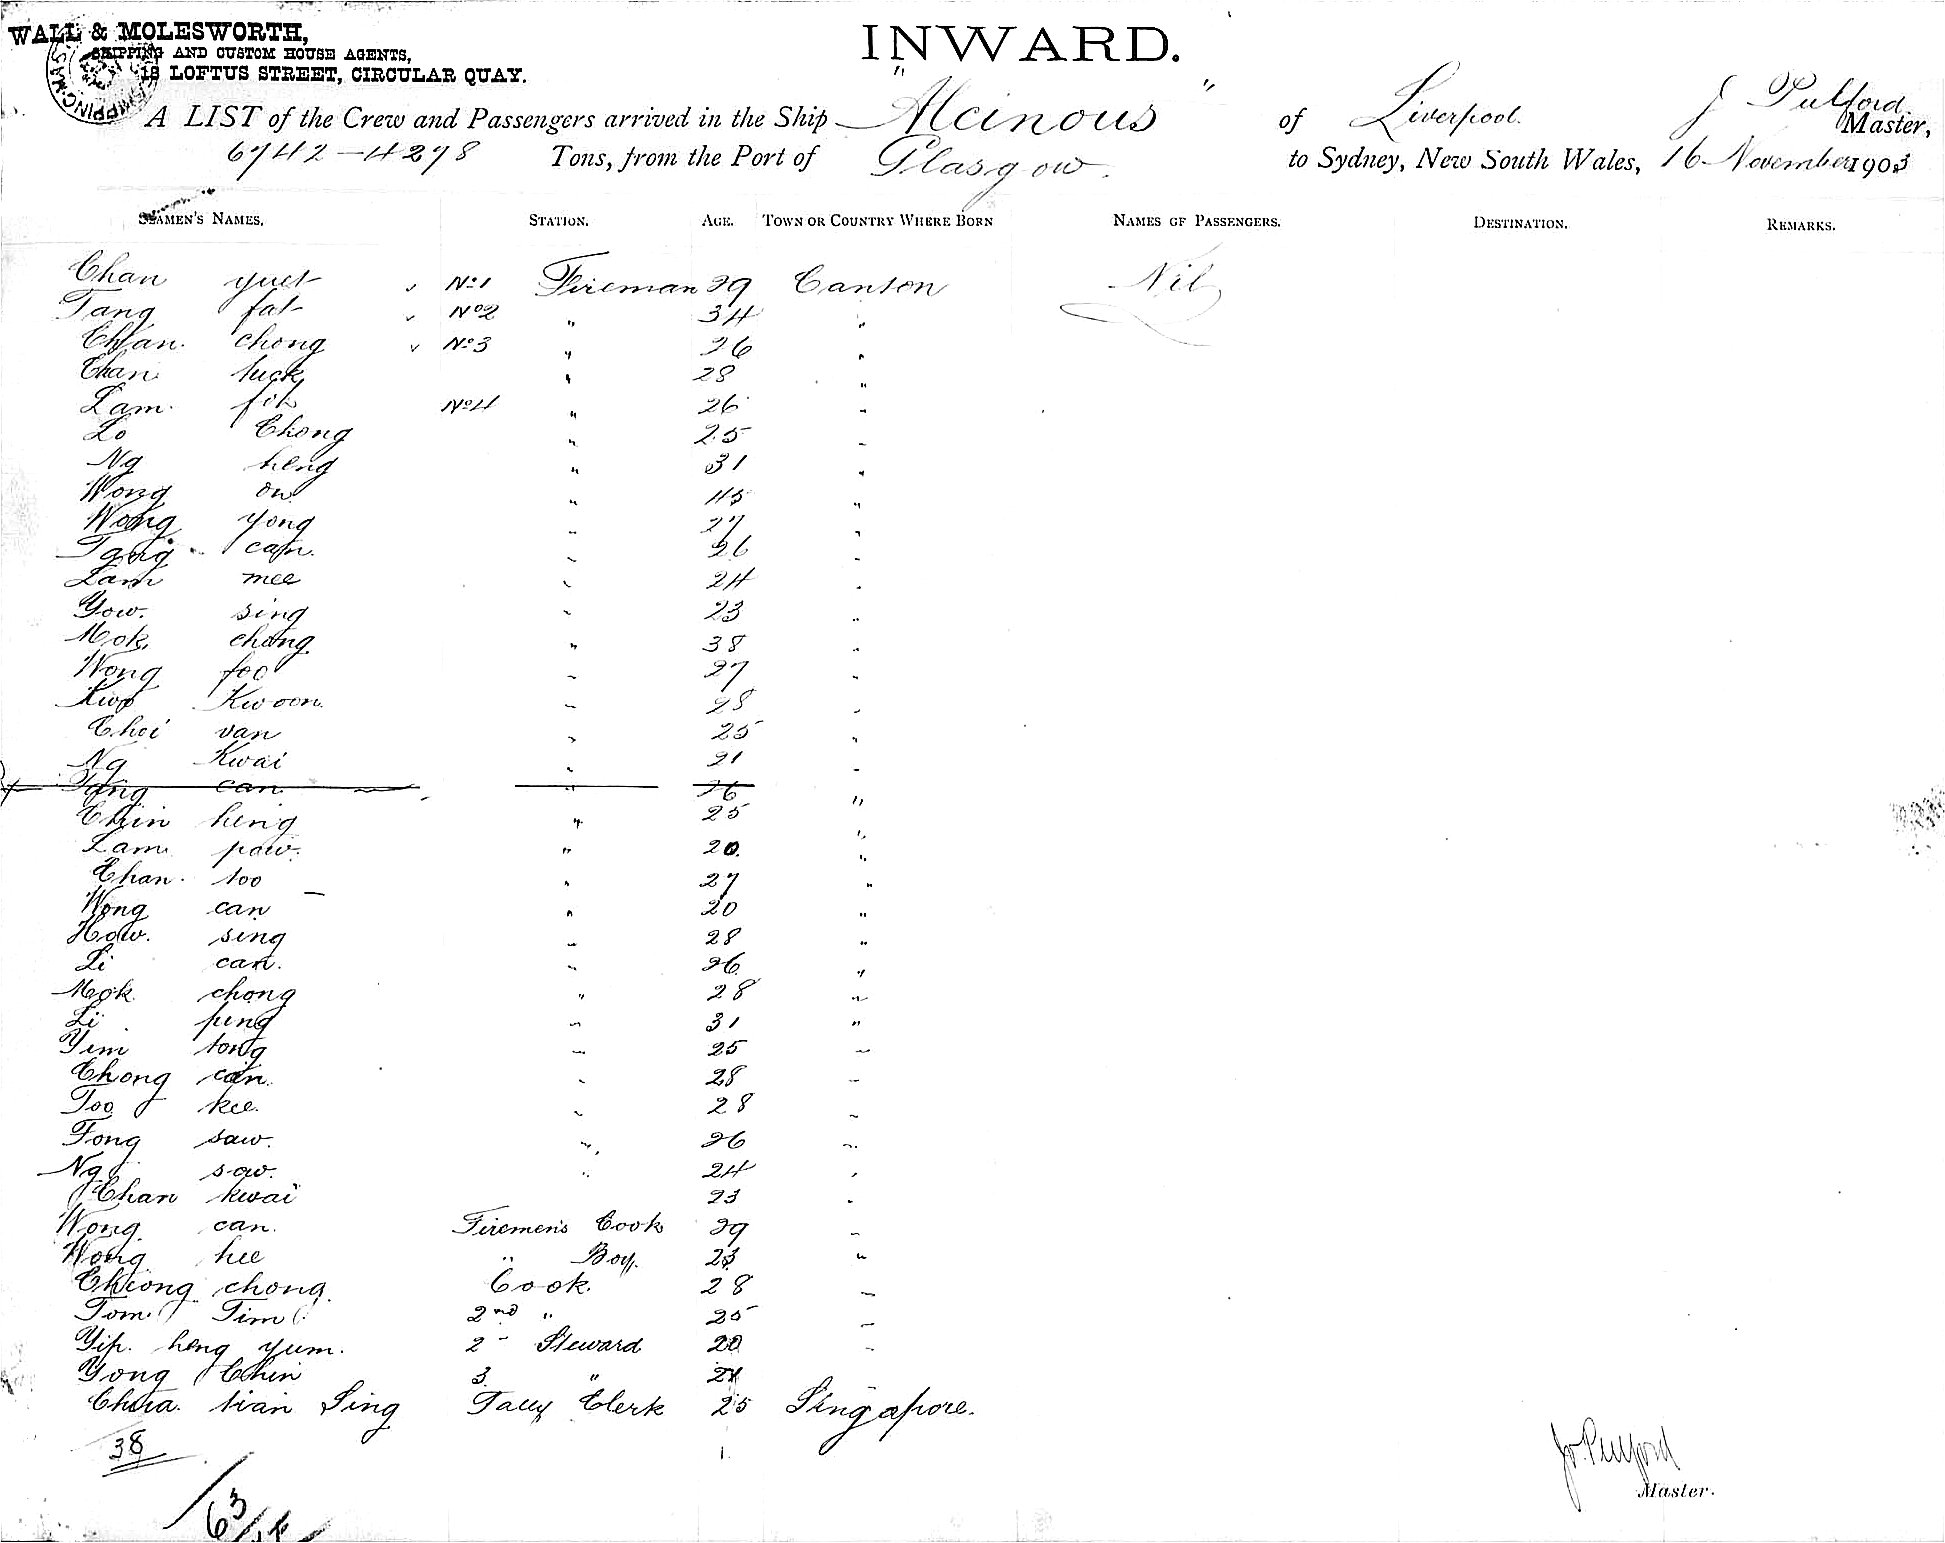 WALL & MOLESWORTH,
SHIPPING AND CUSTOM HOUSE AGENTS,
18 LOFTUS STREET, CIRCULAR QUAY.
INWARD.
A LIST of the Crew and Passengers arrived in the Ship "Alcinous" of Liverpool. J Pulford Master,
6742-4278 Tons, from the Port of Glasgow. to Sydney, New South Wales, 16 November 1903
SEAMEN'S NAMES. STATION. AGE. TOWN OR COUNTRY WHERE BORN NAMES OF PASSENGERS. DESTINATION. REMARKS.
Chan yuet No1 Fireman 29 Canton Nil
Tang fat No2 " 34 "
Chan. chong No3 " 26 "
Chan luck " 28 "
Lam. foh No4 " 26 "
Lo Chong " 25 "
Ng heng " 31 "
Wong on " 45 "
Wong yong " 27 "
Tang can. " 26 "
Lam mee " 24 "
Yow. sing " 23 "
Mok. chong " 38 "
Wong foo " 27 "
Kwo Kwoon. " 28 "
Choi van " 25 "
Ng Kwai " 21 "
Tang can " 26 "
Chin heng " 25 "
Lam paw. " 20. "
Chan. too " 27 "
Wong can " 20 "
How. sing " 28 "
Li can. " 26 "
Mok chong " 28 "
Li fung " 31 "
Yim tong " 25 "
Chong can. " 28 "
Too kee. " 28 "
Fong saw. " 26 "
Ng saw. " 24 "
Chan kwai 23 "
Wong can. Firemen's Cook 29 "
Wong hee " Boy. 23 "
Cheong chong. Cook. 28 "
Tom. Tim 2nd " 25 "
Yip. heng yum. 2 " Steward 20 "
Yong Chin 3. " 21 "
Chua. tian Sing Tally Clerk 25 Singapore.
38
1.
63
Jo. Pulford
Master.